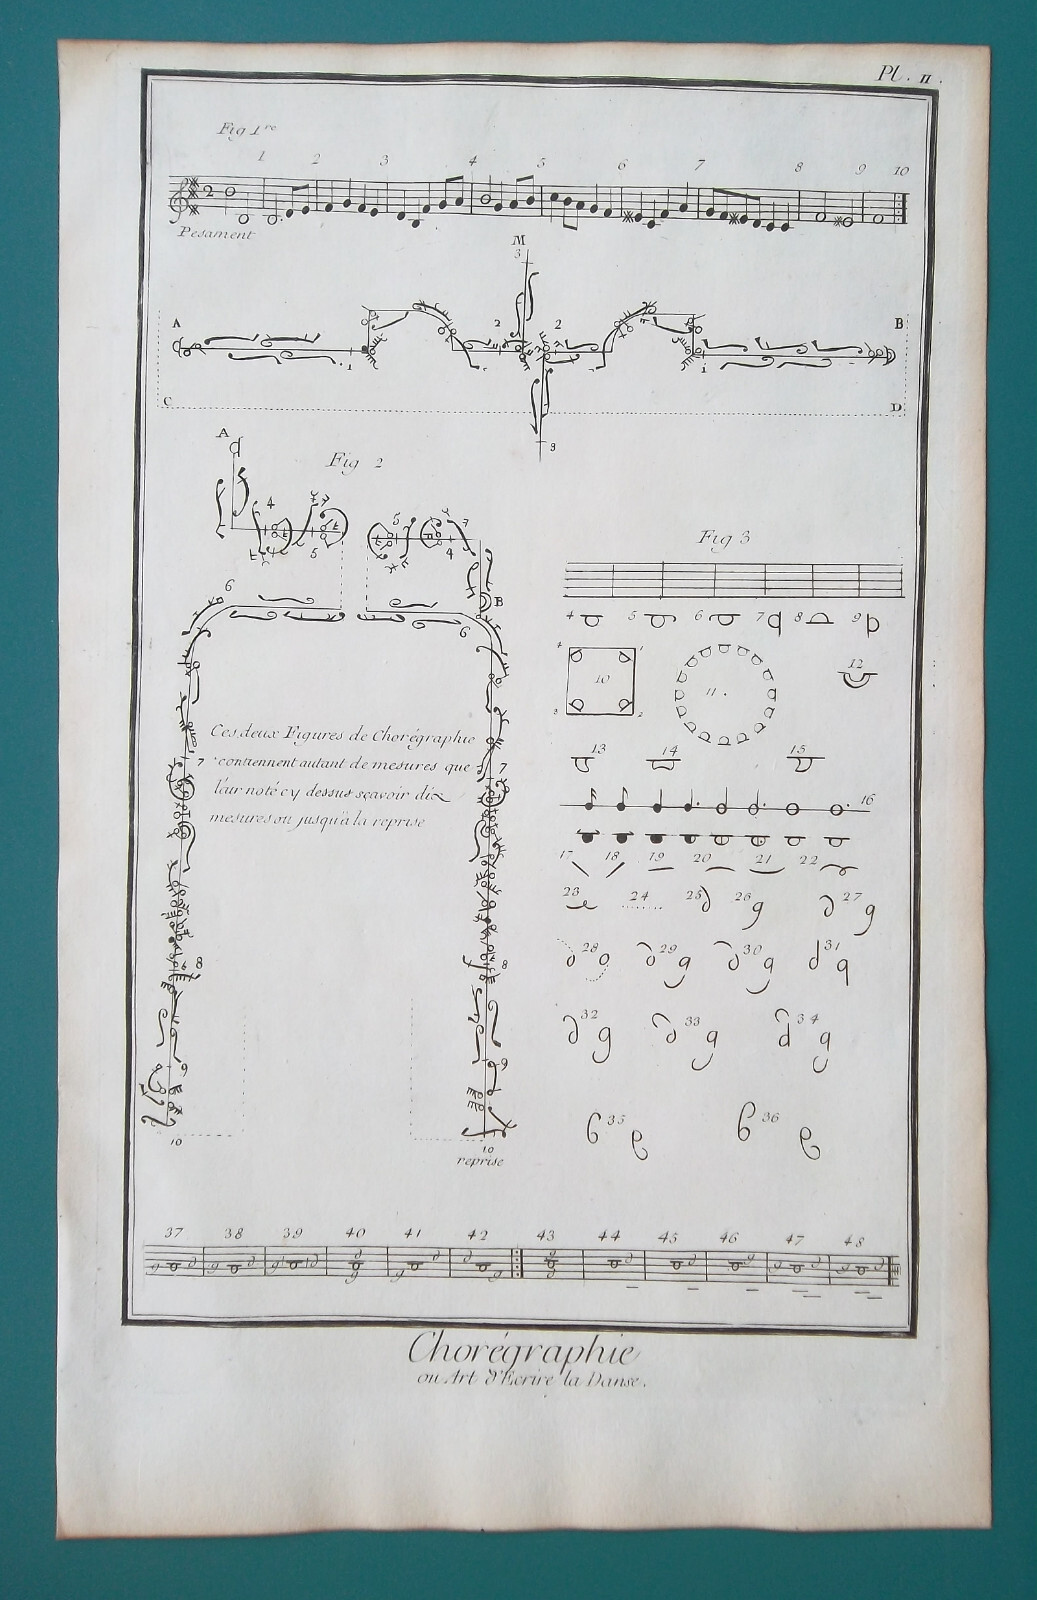 Pl. II.
Fig 1re
1 2 3 4 5 6 7 8 9 10
2
Pesament
M
3
A 2 2 B
1 1
C D
3
A
Fig 2
4 5 7
5 4
Fig 3
B
6
6
4 5 6 7 8 9
4 1
10 11. 12
3 2
Ces deux Figures de Chorégraphie
contiennent autant de mesures que
l'air noté cy dessus sçavoir dix
mesures ou jusqu'à la reprise
7 7
13 14 15
16
17 18 19 20 21 22
23 24 25 26 27
28 29 30 31
8 8
32 33 34
9 9
35 36
10 10
reprise
37 38 39 40 41 42 43 44 45 46 47 48
Chorégraphie
ou Art d'Ecrire la Danse.